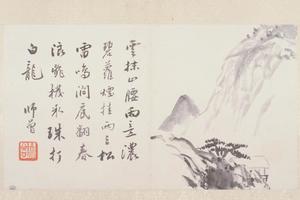 雲抹山腰雨意濃
碧蘿煙挂兩三松
雷鳴澗底翻春
浪 珠打
白龍 師曾